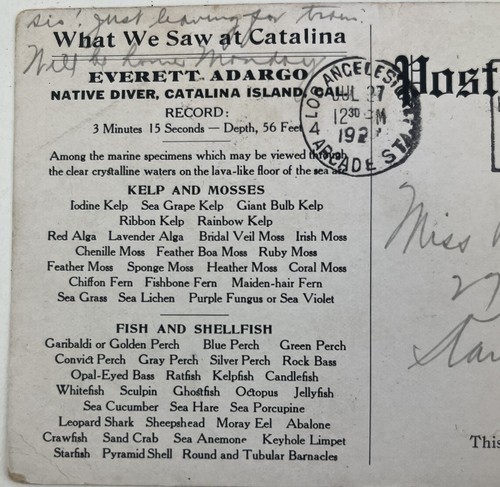 Sis! Just leaving for train.
What We Saw at Catalina
Will be home Monday
EVERETT ADARGO
NATIVE DIVER, CATALINA ISLAND, CAL.
RECORD:
3 Minutes 15 Seconds — Depth, 56 Feet
Among the marine specimens which may be viewed through
the clear crystalline waters on the lava-like floor of the sea are
KELP AND MOSSES
Iodine Kelp Sea Grape Kelp Giant Bulb Kelp
Ribbon Kelp Rainbow Kelp
Red Alga Lavender Alga Bridal Veil Moss Irish Moss
Chenille Moss Feather Boa Moss Ruby Moss
Feather Moss Sponge Moss Heather Moss Coral Moss
Chiffon Fern Fishbone Fern Maiden-hair Fern
Sea Grass Sea Lichen Purple Fungus or Sea Violet
FISH AND SHELLFISH
Garibaldi or Golden Perch Blue Perch Green Perch
Convict Perch Gray Perch Silver Perch Rock Bass
Opal-Eyed Bass Ratfish Kelpfish Candlefish
Whitefish Sculpin Ghostfish Octopus Jellyfish
Sea Cucumber Sea Hare Sea Porcupine
Leopard Shark Sheepshead Moray Eel Abalone
Crawfish Sand Crab Sea Anemone Keyhole Limpet
Starfish Pyramid Shell Round and Tubular Barnacles
LOS ANGELES, CAL.
JUL 27
12 30 PM
4 192
ARCADE STA.
Post
Miss
This